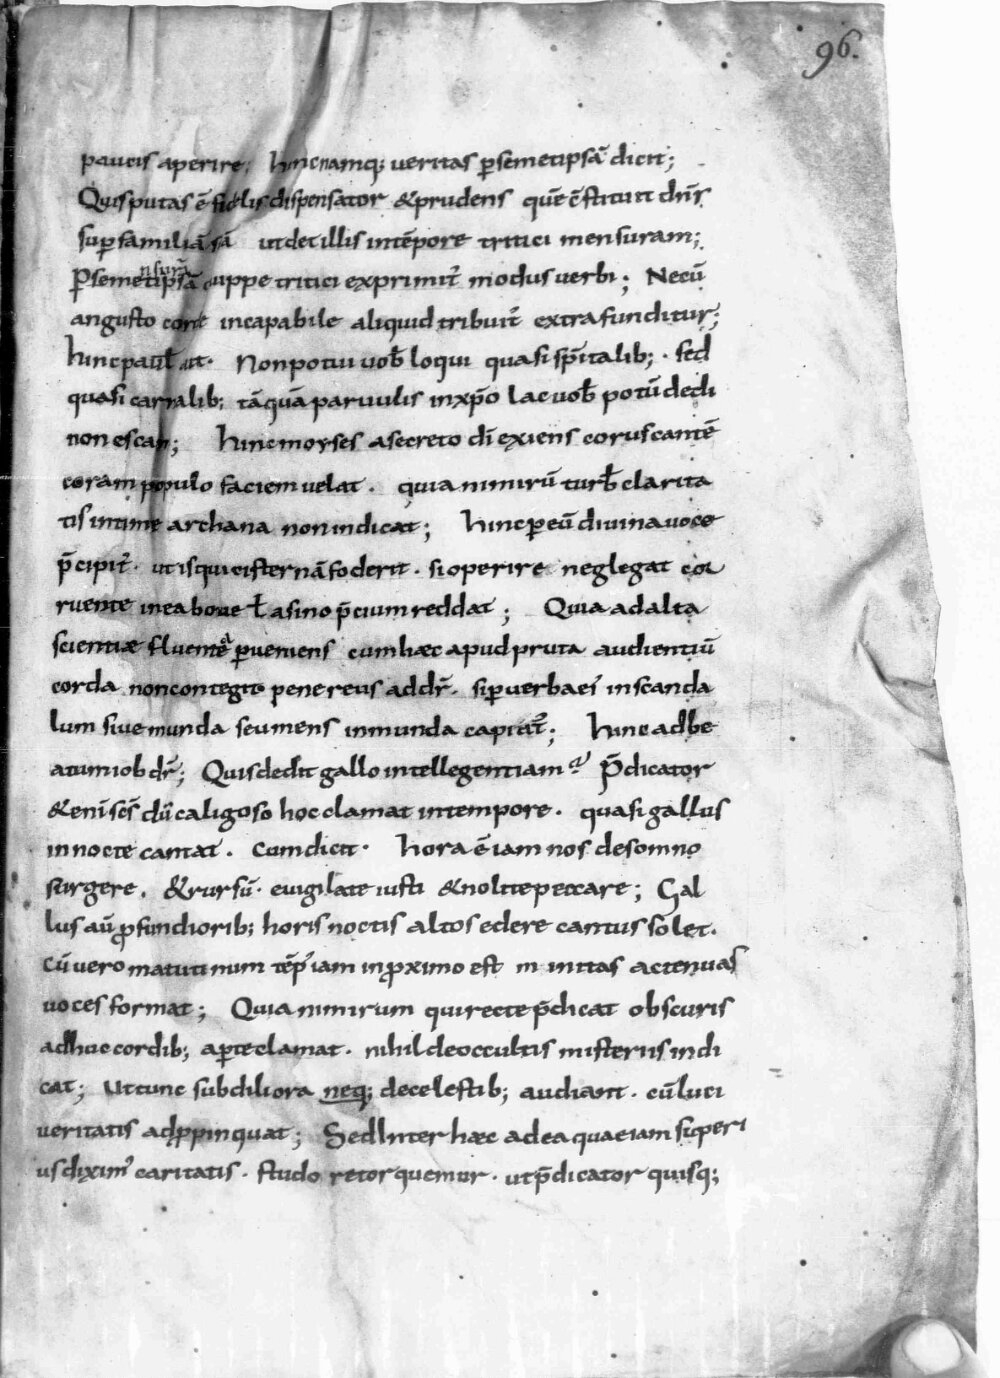 96.
paucis aperire; hincnamq; ueritas p̄semetipsā dicit;
Quisputas ē fidelis dispensator &prudens quē c̄stituit dn̄s
sup̄ familiā sā ut det illis intēpore tritici mensuram;
nsurā
P̄semetipsā uppe tritici exprimit̄ modus uerbi; Necū
angusto corde incapabile aliquid tribuit̄ extra funditur;
hinc paul̄ ait. Non potui uob̄ loqui quasi sp̄italib; . sed
quasi carnalib; tāquā paruulis inxp̄o lac uob̄ potū dedi
non escam; hinc moyses asecreto dī exiens coruscantē
coram populo faciem uelat. quia nimirū turb̄ clarita
tis intime archana non indicat; hinc p̄ eū diuina uoce
p̄cipit̄. ut isquicisternā foderit. si operire neglegat cor
ruente inea boue ł asino p̄cium reddat; Quia ad alta
scientiæ fluenta p̄ueniens cum hæc apud pruta audientiū
corda non contegit pene reus addr̄. sip̄uerba eī inscanda
lum siue munda seu mens inmunda capiat̄; hinc ad be
atum iob dr̄; Quis dedit gallo intellegentiam P̄dicator
&enī sc̄s dū caligoso hoc clamat in tempore. quasi gallus
in nocte cantat. cum dicit. hora ē iam nos desomno
surgere. &rursū. euigilate iusti &nolite peccare; Gal
lus aū ꝓfundiorib; horis noctis altos edere cantus solet.
cū uero matutinum tēp̄ iam inꝓximo est minutas ac tenuas
uoces format; Quia nimirum qui recte p̄dicat obscuris
adhuc cordib; ap̄te clamat. nihil de occultis misteriis indi
cat; ut tunc subdiliora neq; de celestib; audiant. cū luci
ueritatis adꝓpinquat; Sed Inter hæc adea quae iam superi
us diximꝰ caritatis. studo retorquemur. ut p̄dicator quisq;